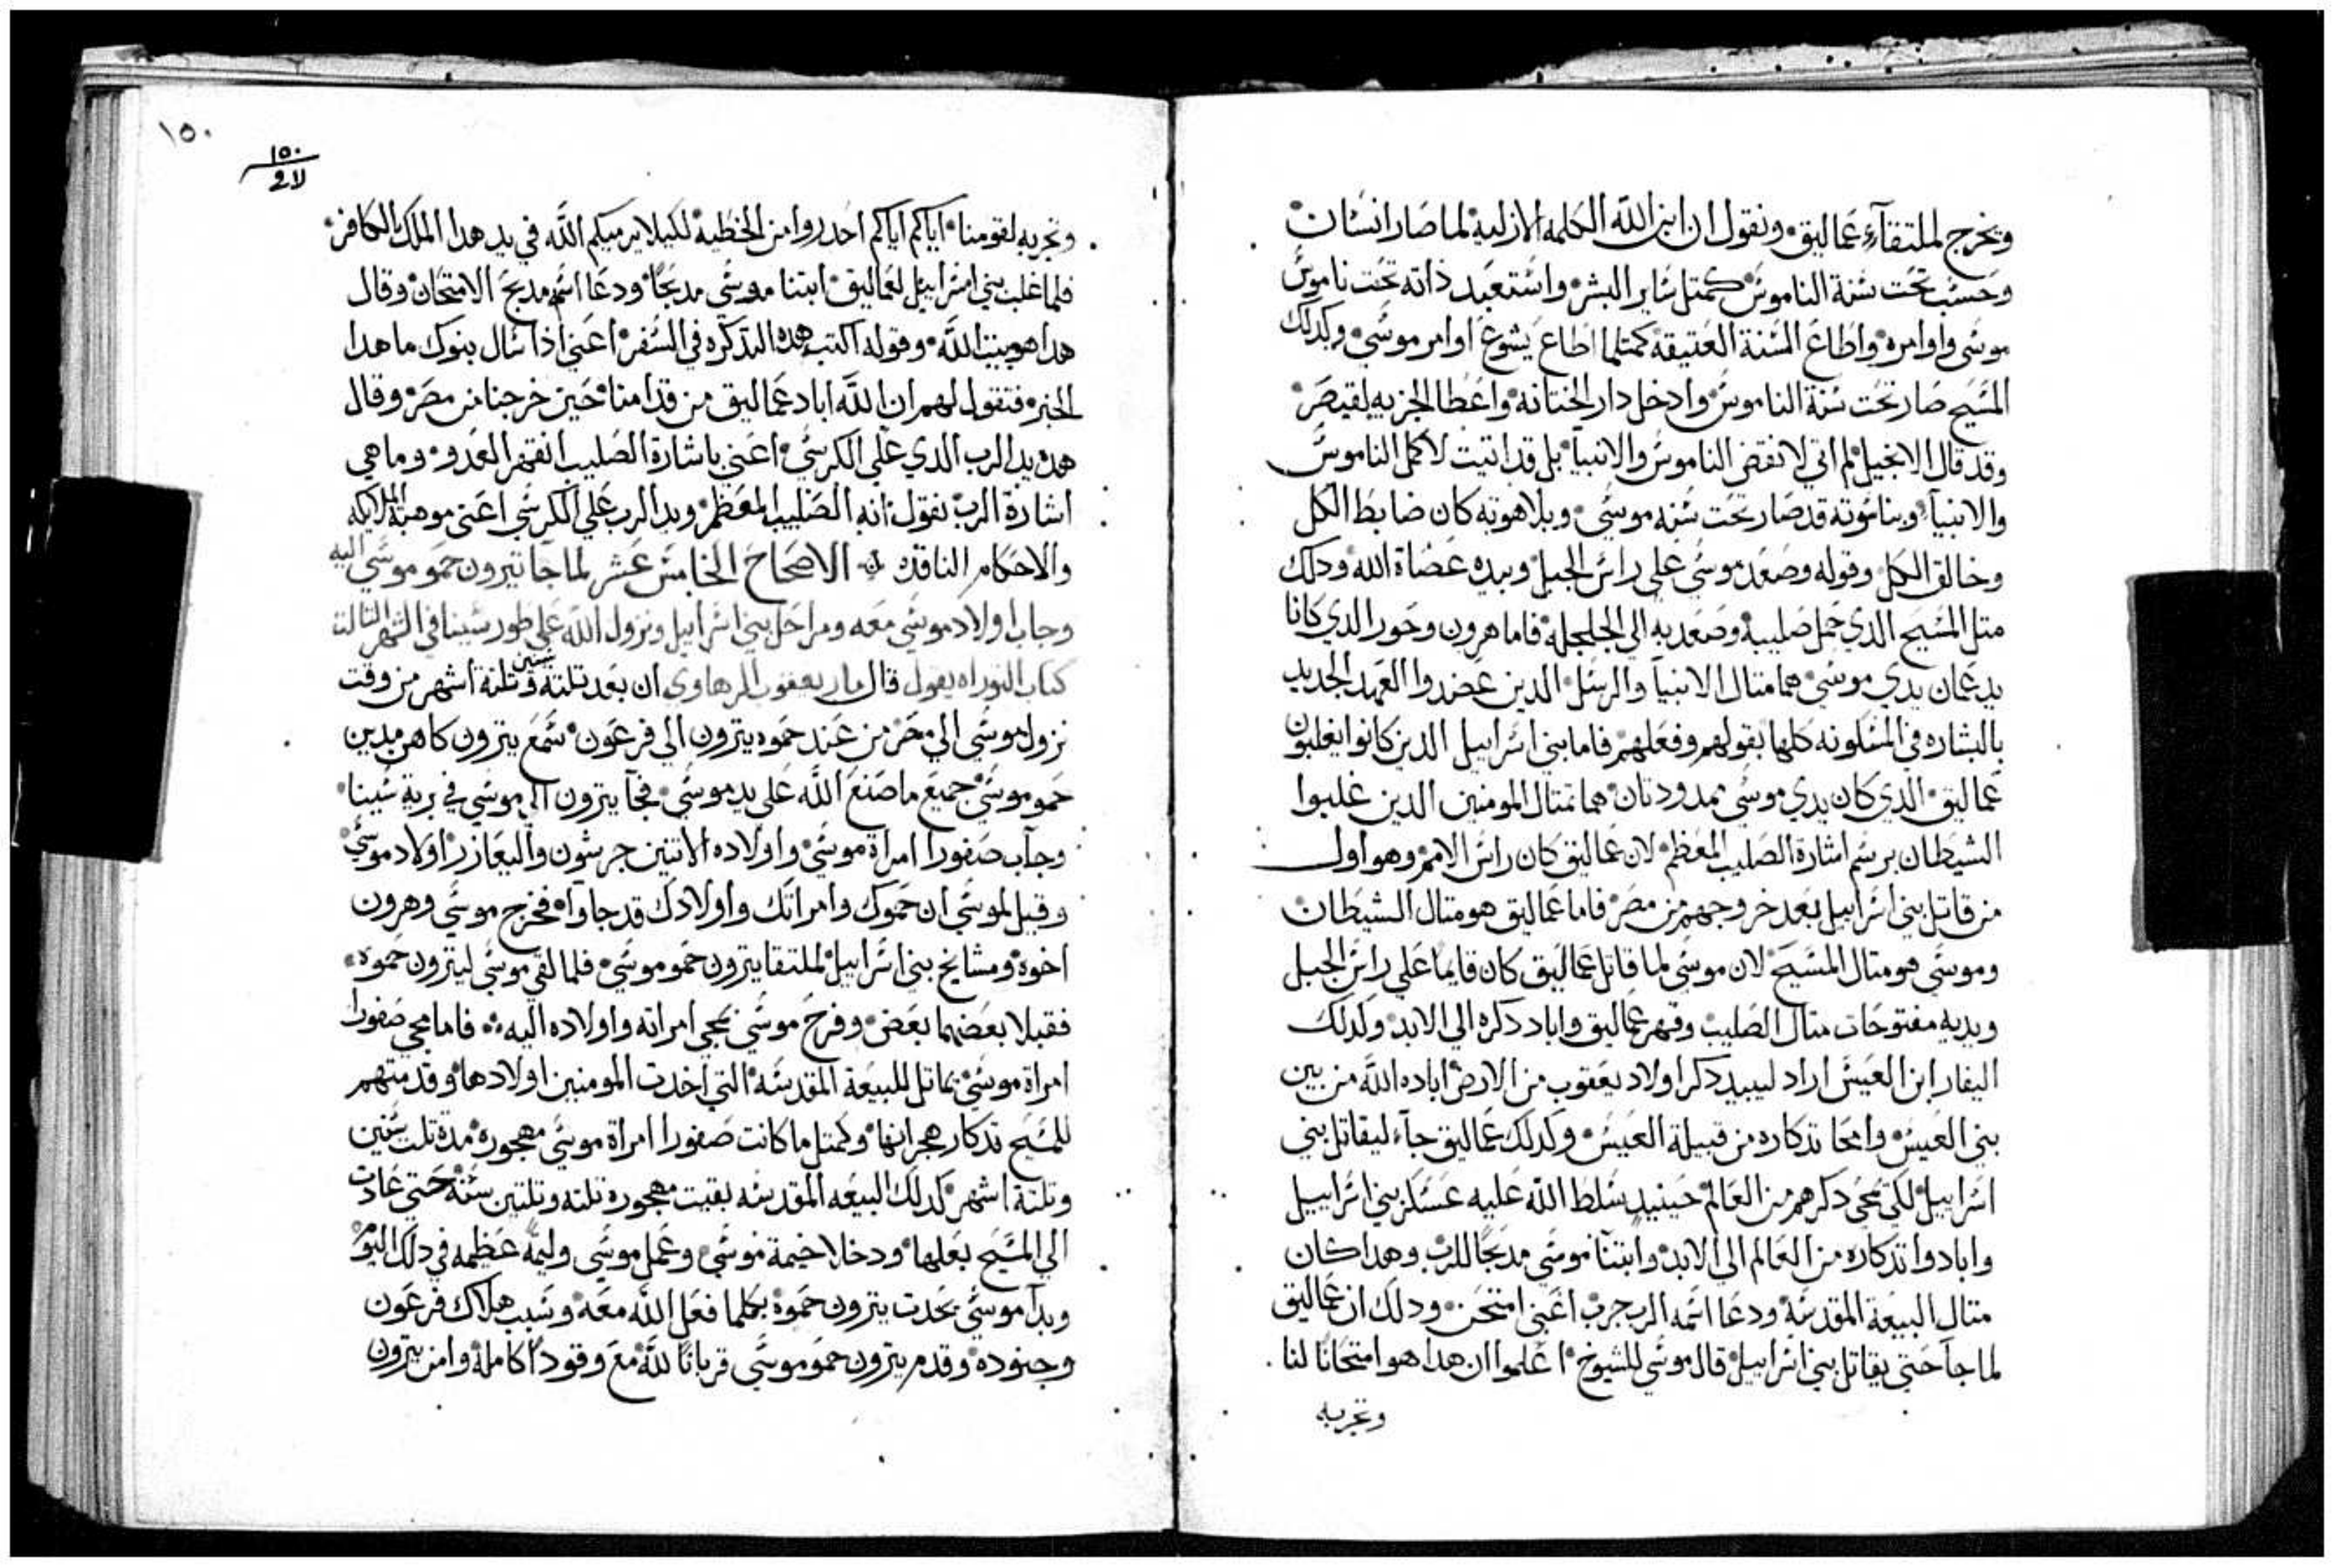 ويخرج لملتقآء عماليق ونقول ان ابن الله الكلمه الازلية لما صار انسان
وحسب تحت سنة الناموس كمتل ساير البشر واستعبد ذاته تحت ناموس
موسى واوامره واطاع السنة العتيقة كمتلما اطاع يشوع اوامر موسي وكدلك
المسيح صار تحت سنة الناموس وادخل دار الختانه واعطا الجزيه لقيصر
وقد قال الانجيل لم اتي لانقض الناموس والانبيآ بل قد اتيت لاكمل الناموس
والانبيآ وبناسوته قد صار تحت سنه موسي وبلاهوته كان ضابط الكل
وخالق الكل وقوله وصعد موسي علي راس الجبل وبيده عصاة الله ودلك
متل المسيح الدي حمل صليبه وصعد به الي الجلجله فاما هرون وحور الدي كانا
يدعمان يدي موسي هما متال الانبيآ والرسل الدين عضدوا العهد الجديد
بالبشاره في المسكونه كلها بقولهم وفعلهم فاما بني اسراييل الدين كانوا يغلبون
عماليق الدي كان يدي موسي ممدودتان هما تمتال المومنين الدين غلبوا
الشيطان برسم اشارة الصليب المعظم لان عماليق كان راس الامم وهو اول
من قاتل بني اسراييل بعد خروجهم من مصر فاما عماليق هو متال الشيطان
وموسي هو متال المسيح لان موسي لما قاتل عماليق كان قايما علي راس الجبل
ويديه مفتوحات متال الصليب وقهر عماليق واباد دكره الي الابد وكدلك
اليفار ابن العيس اراد ليبيد دكر اولاد يعقوب من الارض اباده الله من بين
بني العيس وامحا تدكاره من قبيلة العيس وكدلك عماليق جآء ليقاتل بني
اسراييل لكي يمحي دكرهم من العالم حينيد سلط الله عليه عسكر بني اسراييل
وابادوا تدكاره من العالم الي الابد وابتنآ موسي مدبحًا للرب وهدا كان
متال البيعة المقدسة ودعا اسمه الرب جرب اعني امتحن ودلك ان عماليق
لما جآ حتي يقاتل بني اسراييل قال موسي للشيوخ اعلموا ان هدا هو امتحانًا لنا
وتجربه
١٥٠
١٥٠
وتجربه لقومنا اياكم اياكم احدروا من الخطية لكيلا يرميكم الله في يد هدا الملك الكافر
فلما غلب بني اسراييل لعماليق ابتنا موسي مدبحًا ودعا اسمه مدبح الامتحان وقال
هدا هو بيت الله وقوله اكتب هده التدكره في السفر اعني اذا سال بنوك ما هدا
الخبر فتقول لهم ان الله اباد عماليق من قدامنا حين خرجنا من مصر وقال
هده يد الرب الدي علي الكرسي اعني باشارة الصليب انقهر العدو وما هي
اشارة الرب نقول انه الصليب المعظم ويد الرب علي الكرسي اعني موهبة الملايكه
والاحكام النافده الاصحاح الخامس عشر لما جا تيرون حمو موسي اليه
وجاب اولاد موسي معه ومراحل بني اسراييل ونزول الله علي طور سينا في الشهر التالت
كتاب التوراه يقول قال مار يعقوب الرهاوي ان بعد تلته سنين وتلتة اشهر من وقت
نزول موسي الي مصر من عند حموه يترون الي فرعون سمع يترون كاهن مدين
حمو موسي جميع ما صنع الله علي يد موسي فجآ يترون الي موسي في برية سينا
وجآب صفورا امراة موسي واولاده الاتنين جرشون واليعازر اولاد موسي
وقيل لموسي ان حموك وامراتك واولادك قد جاوا فخرج موسي وهرون
اخوه ومشايخ بني اسراييل لملتقا يترون حمو موسي فلما لقي موسي ليترون حموه
فقبلا بعضهما بعض وفرح موسي بمجي امراته واولاده اليه فاما مجي صفورا
امراة موسي تماتل للبيعة المقدسه التي اخدت المومنين اولادها وقدمتهم
للمسيح تدكار هجرانها وكمتل ما كانت صفورا امراة موسي مهجوره مدة تلت سنين
وتلتة اشهر كدلك البيعه المقدسه بقيت مهجوره تلته وتلتين سنه حتي عادت
الي المسيح بعلها ودخلا خيمة موسي وعمل موسي وليمة عظيمه في دلك اليوم
وبدآ موسي يحدت يترون حموه بكلما فعل الله معه وسبب هلاك فرعون
وجنوده وقدم يترون حمو موسي قربانًا لله مع وقودًا كاملة وامن يترون